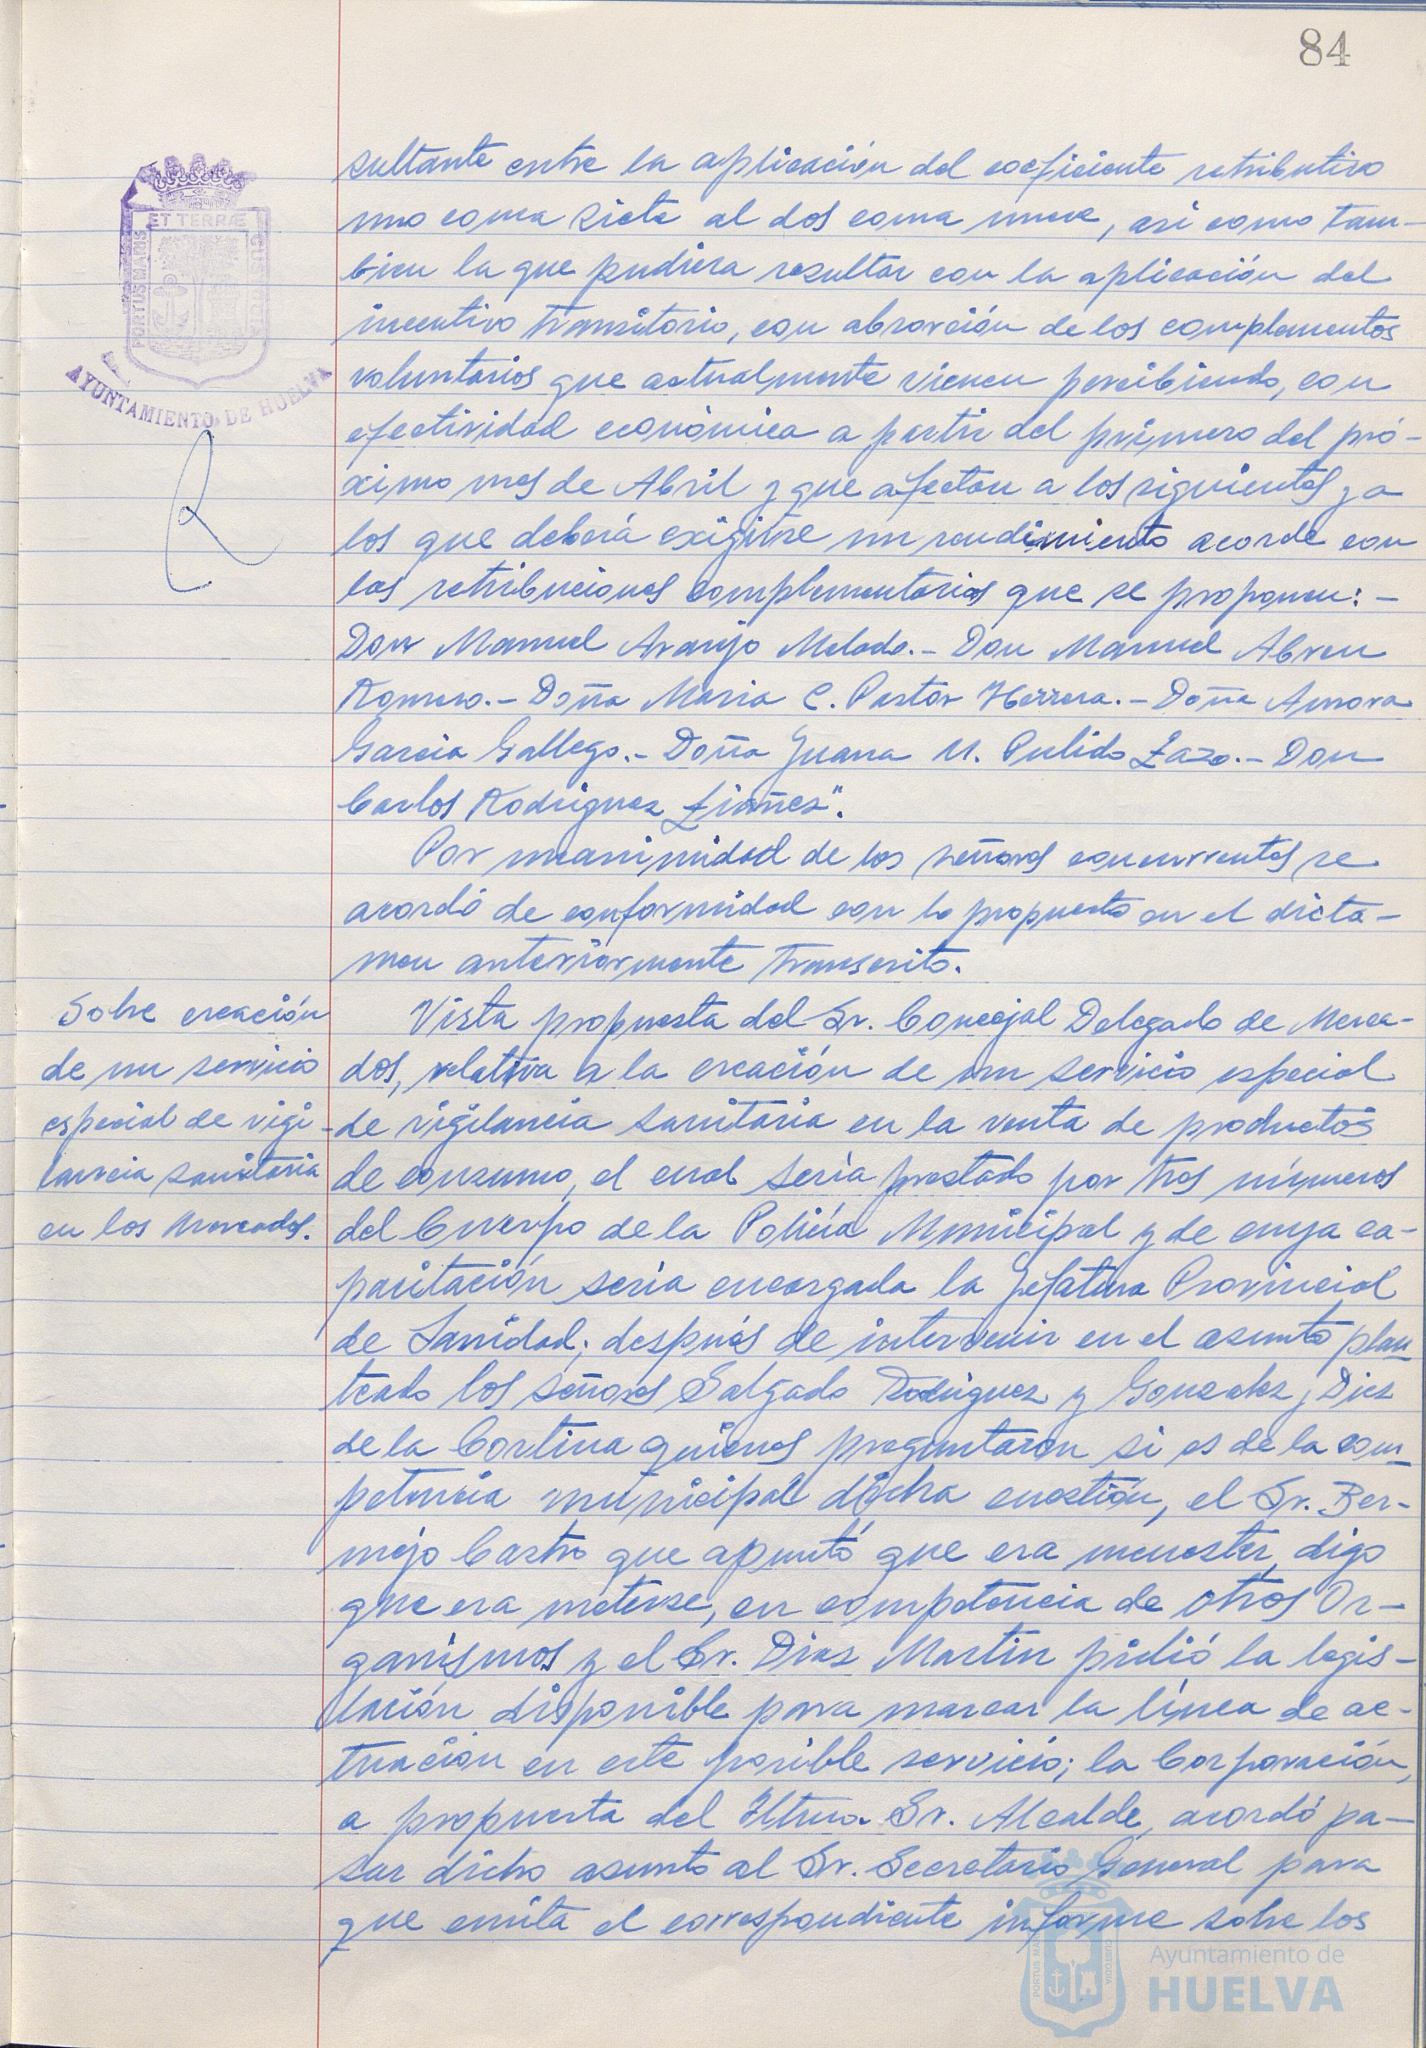 84
ET TERRÆ
PORTUS MARIS
CUSTODIA
AYUNTAMIENTO DE HUELVA
sultante entre la aplicación del coeficiente retributivo
uno coma siete al dos coma nueve, asi como tam-
bien la que pudiera resultar con la aplicación del
incentivo transitorio, con absorción de los complementos
voluntarios que actualmente vienen percibiendo, con
efectividad económica a partir del primero del pró-
ximo mes de Abril y que afectan a los siguientes y a
los que deberá exigirse un rendimiento acorde con
las retribuciones complementarias que se proponen: -
Don Manuel Araujo Melado.- Don Manuel Abreu
Romero.- Doña Maria C. Pastor Herrera.- Doña Aurora
Garcia Gallego.- Doña Juana M. Pulido Lazo.- Don
Carlos Rodriguez Liañez".
Por unanimidad de los señores concurrentes se
acordó de conformidad con lo propuesto en el dicta-
men anteriormente transcrito.
Sobre creación
de un servicio
especial de vigi-
lancia sanitaria
en los Mercados.
Vista propuesta del Sr. Concejal Delegado de Merca-
dos, relativa a la creación de un servicio especial
de vigilancia sanitaria en la venta de productos
de consumo, el cual sería prestado por tres números
del Cuerpo de la Policía Municipal y de cuya ca-
pacitación sería encargada la Jefatura Provincial
de Sanidad; después de intervenir en el asunto plan-
teado los señores Salgado Rodriguez y Gonzalez, Diez
de la Cortina quienes preguntaron si es de la com-
petencia municipal dicha cuestión, el Sr. Ber-
mejo Castro que apuntó que era menester, digo
que era meterse, en competencia de otros Or-
ganismos y el Sr. Dias Martin pidió la legis-
lación disponible para marcar la línea de ac-
tuación en este posible servicio; la Corporación,
a propuesta del Iltmo. Sr. Alcalde, acordó pa-
sar dicho asunto al Sr. Secretario General para
que emita el correspondiente informe sobre los
Ayuntamiento de
HUELVA